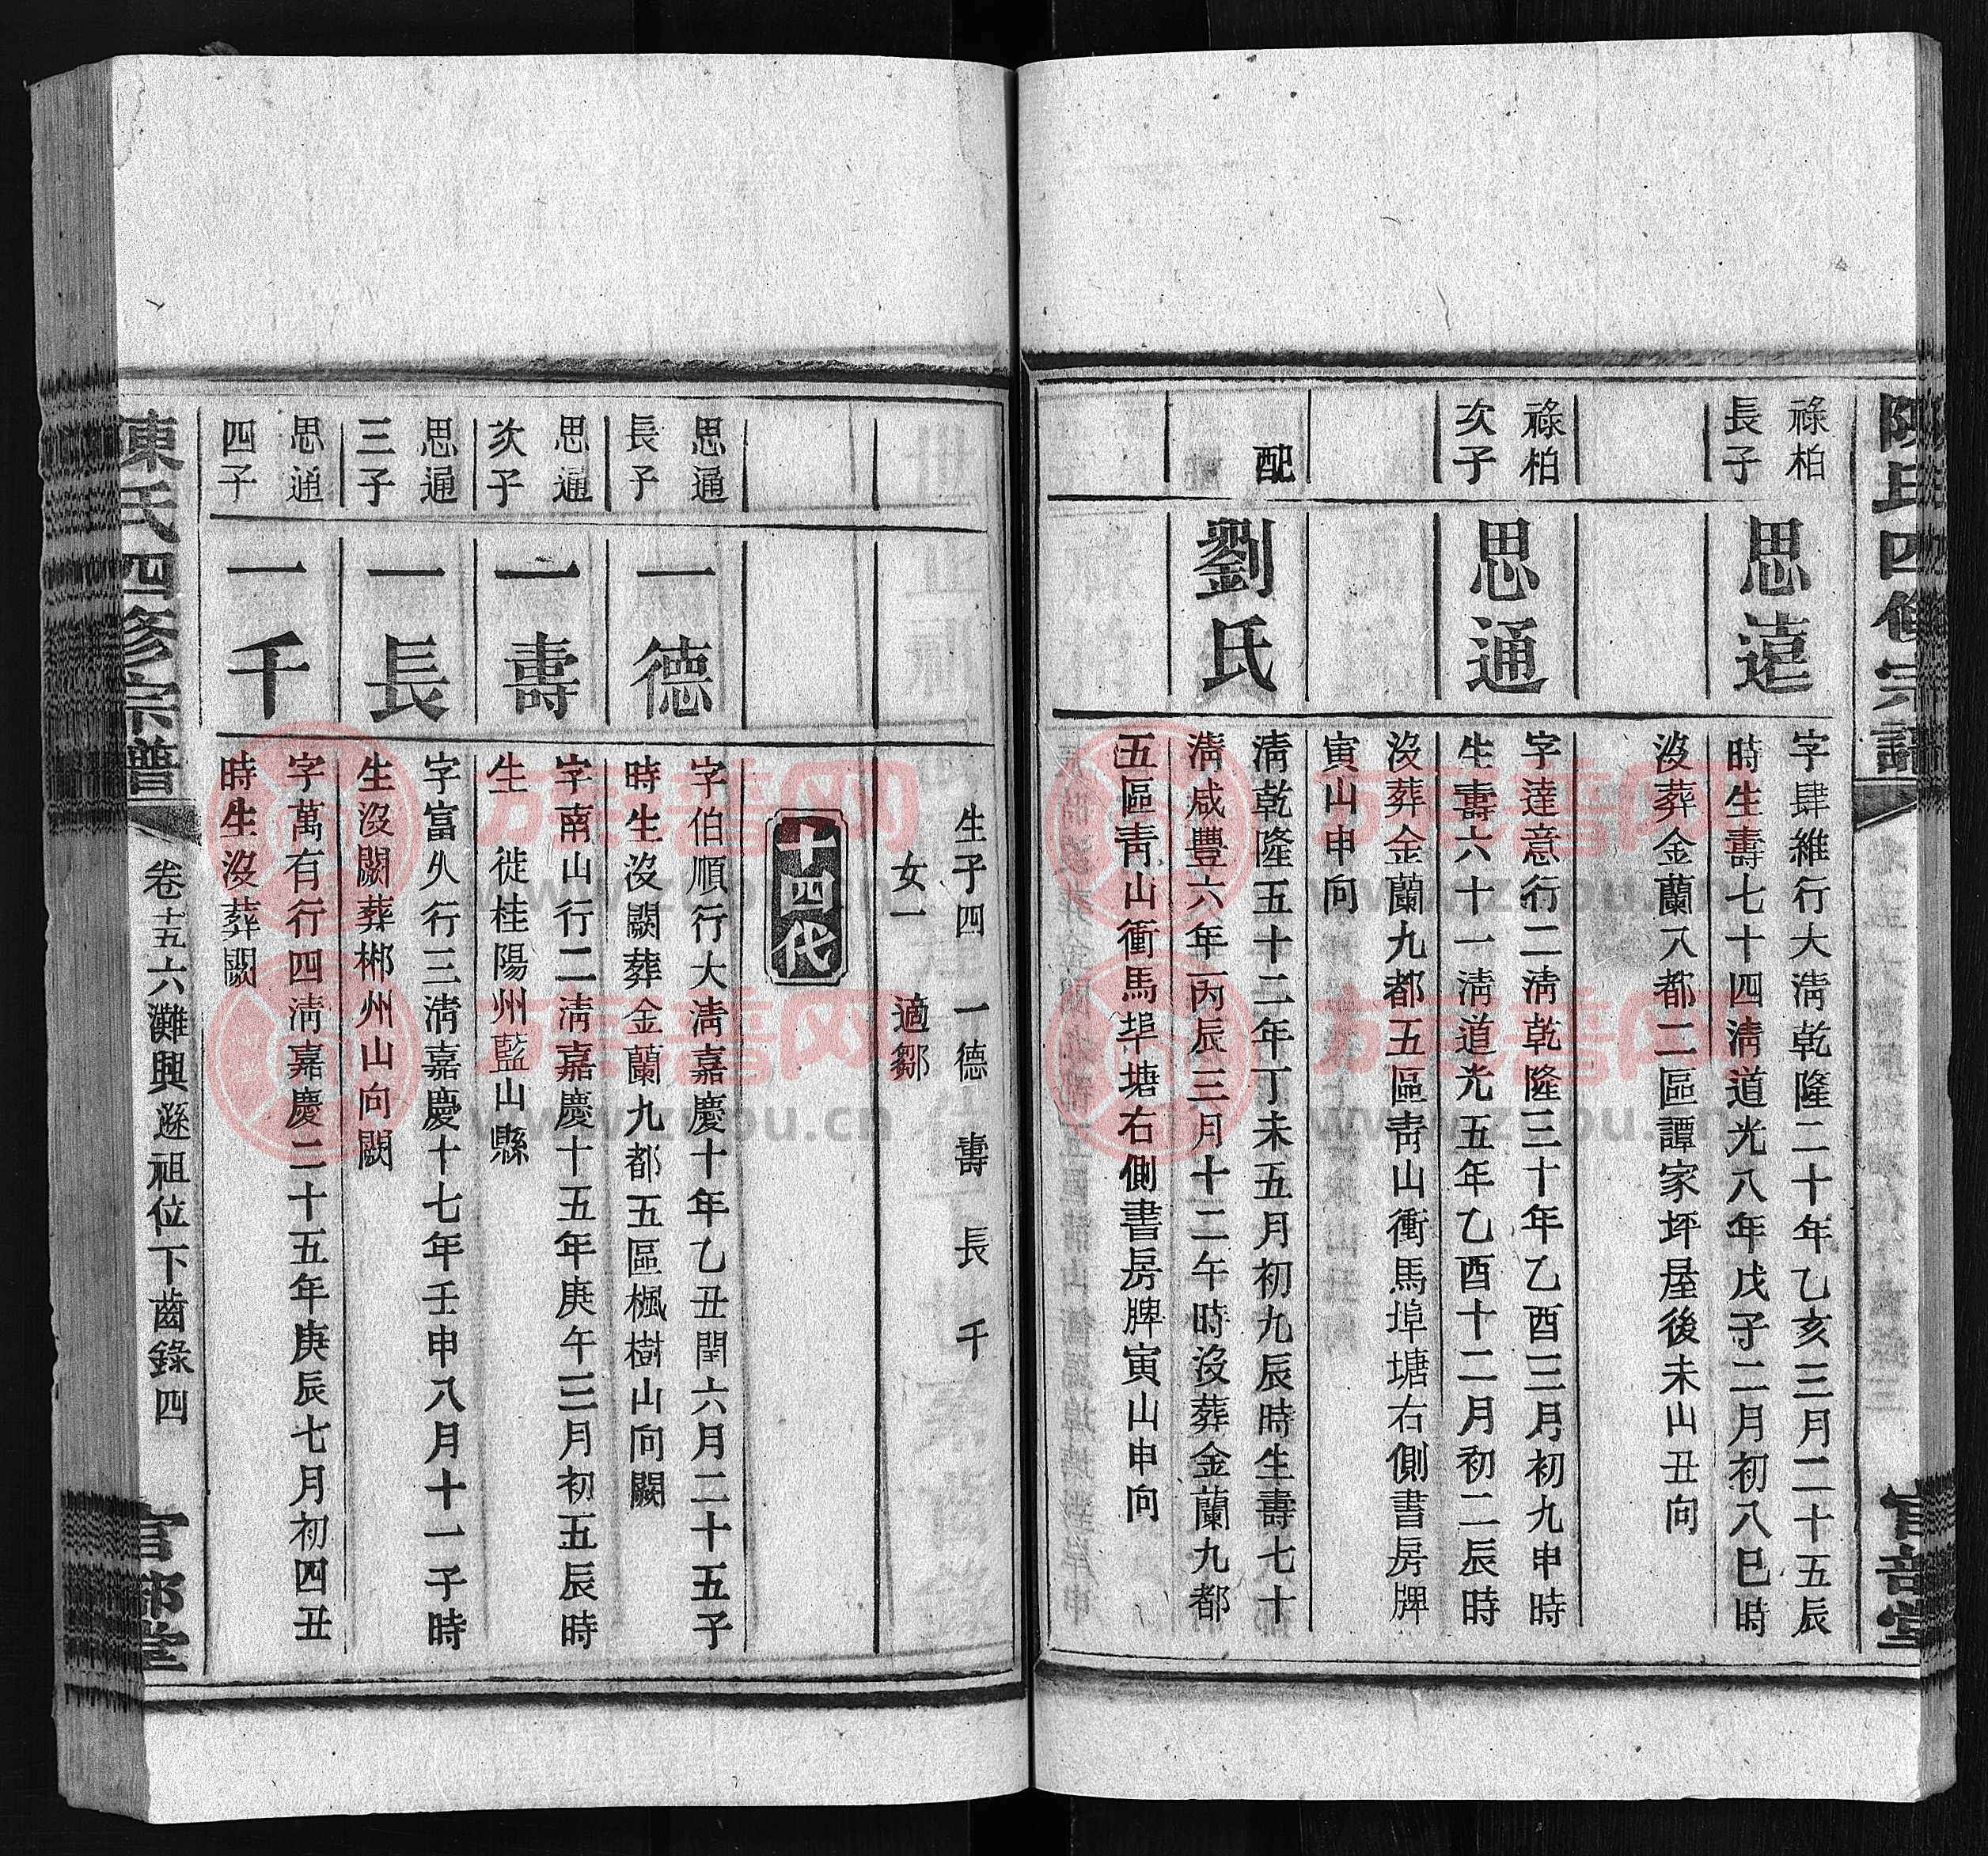 陳氏四修宗譜
官部堂
祿柏
長子
思遠
字肆維行大淸乾隆二十年乙亥三月二十五辰
時生壽七十四淸道光八年戊子二月初八巳時
沒葬金蘭八都二區譚家坪屋後未山丑向
祿柏
次子
思通
字達意行二淸乾隆三十年乙酉三月初九申時
生壽六十一淸道光五年乙酉十二月初二辰時
沒葬金蘭九都五區靑山衝馬埠塘右側書房牌
寅山申向
配
劉氏
淸乾隆五十二年丁未五月初九辰時生壽七十
淸咸豐六年丙辰三月十二午時沒葬金蘭九都
五區靑山衝馬埠塘右側書房脾寅山申向
生子四 一德 壽 長 千
女一 適鄒
十四代
思通
長子
一德
字伯順行大淸嘉慶十年乙丑閏六月二十五子
時生沒闕葬金蘭九都五區楓樹山向闕
思通
次子
一壽
字南山行二淸嘉慶十五年庚午三月初五辰時
生 徙桂陽州藍山縣
思通
三子
一長
字富久行三淸嘉慶十七年壬申八月十一子時
生沒闕葬郴州山向闕
思通
四子
一千
字萬有行四淸嘉慶二十五年庚辰七月初四丑
時生沒葬闕
陳氏四修宗譜
卷十五六灘興遜祖位下齒錄四
官部堂
族譜网
www.zupu.cn
族譜网
www.zupu.cn
族譜网
www.zupu.cn
族譜网
www.zupu.cn